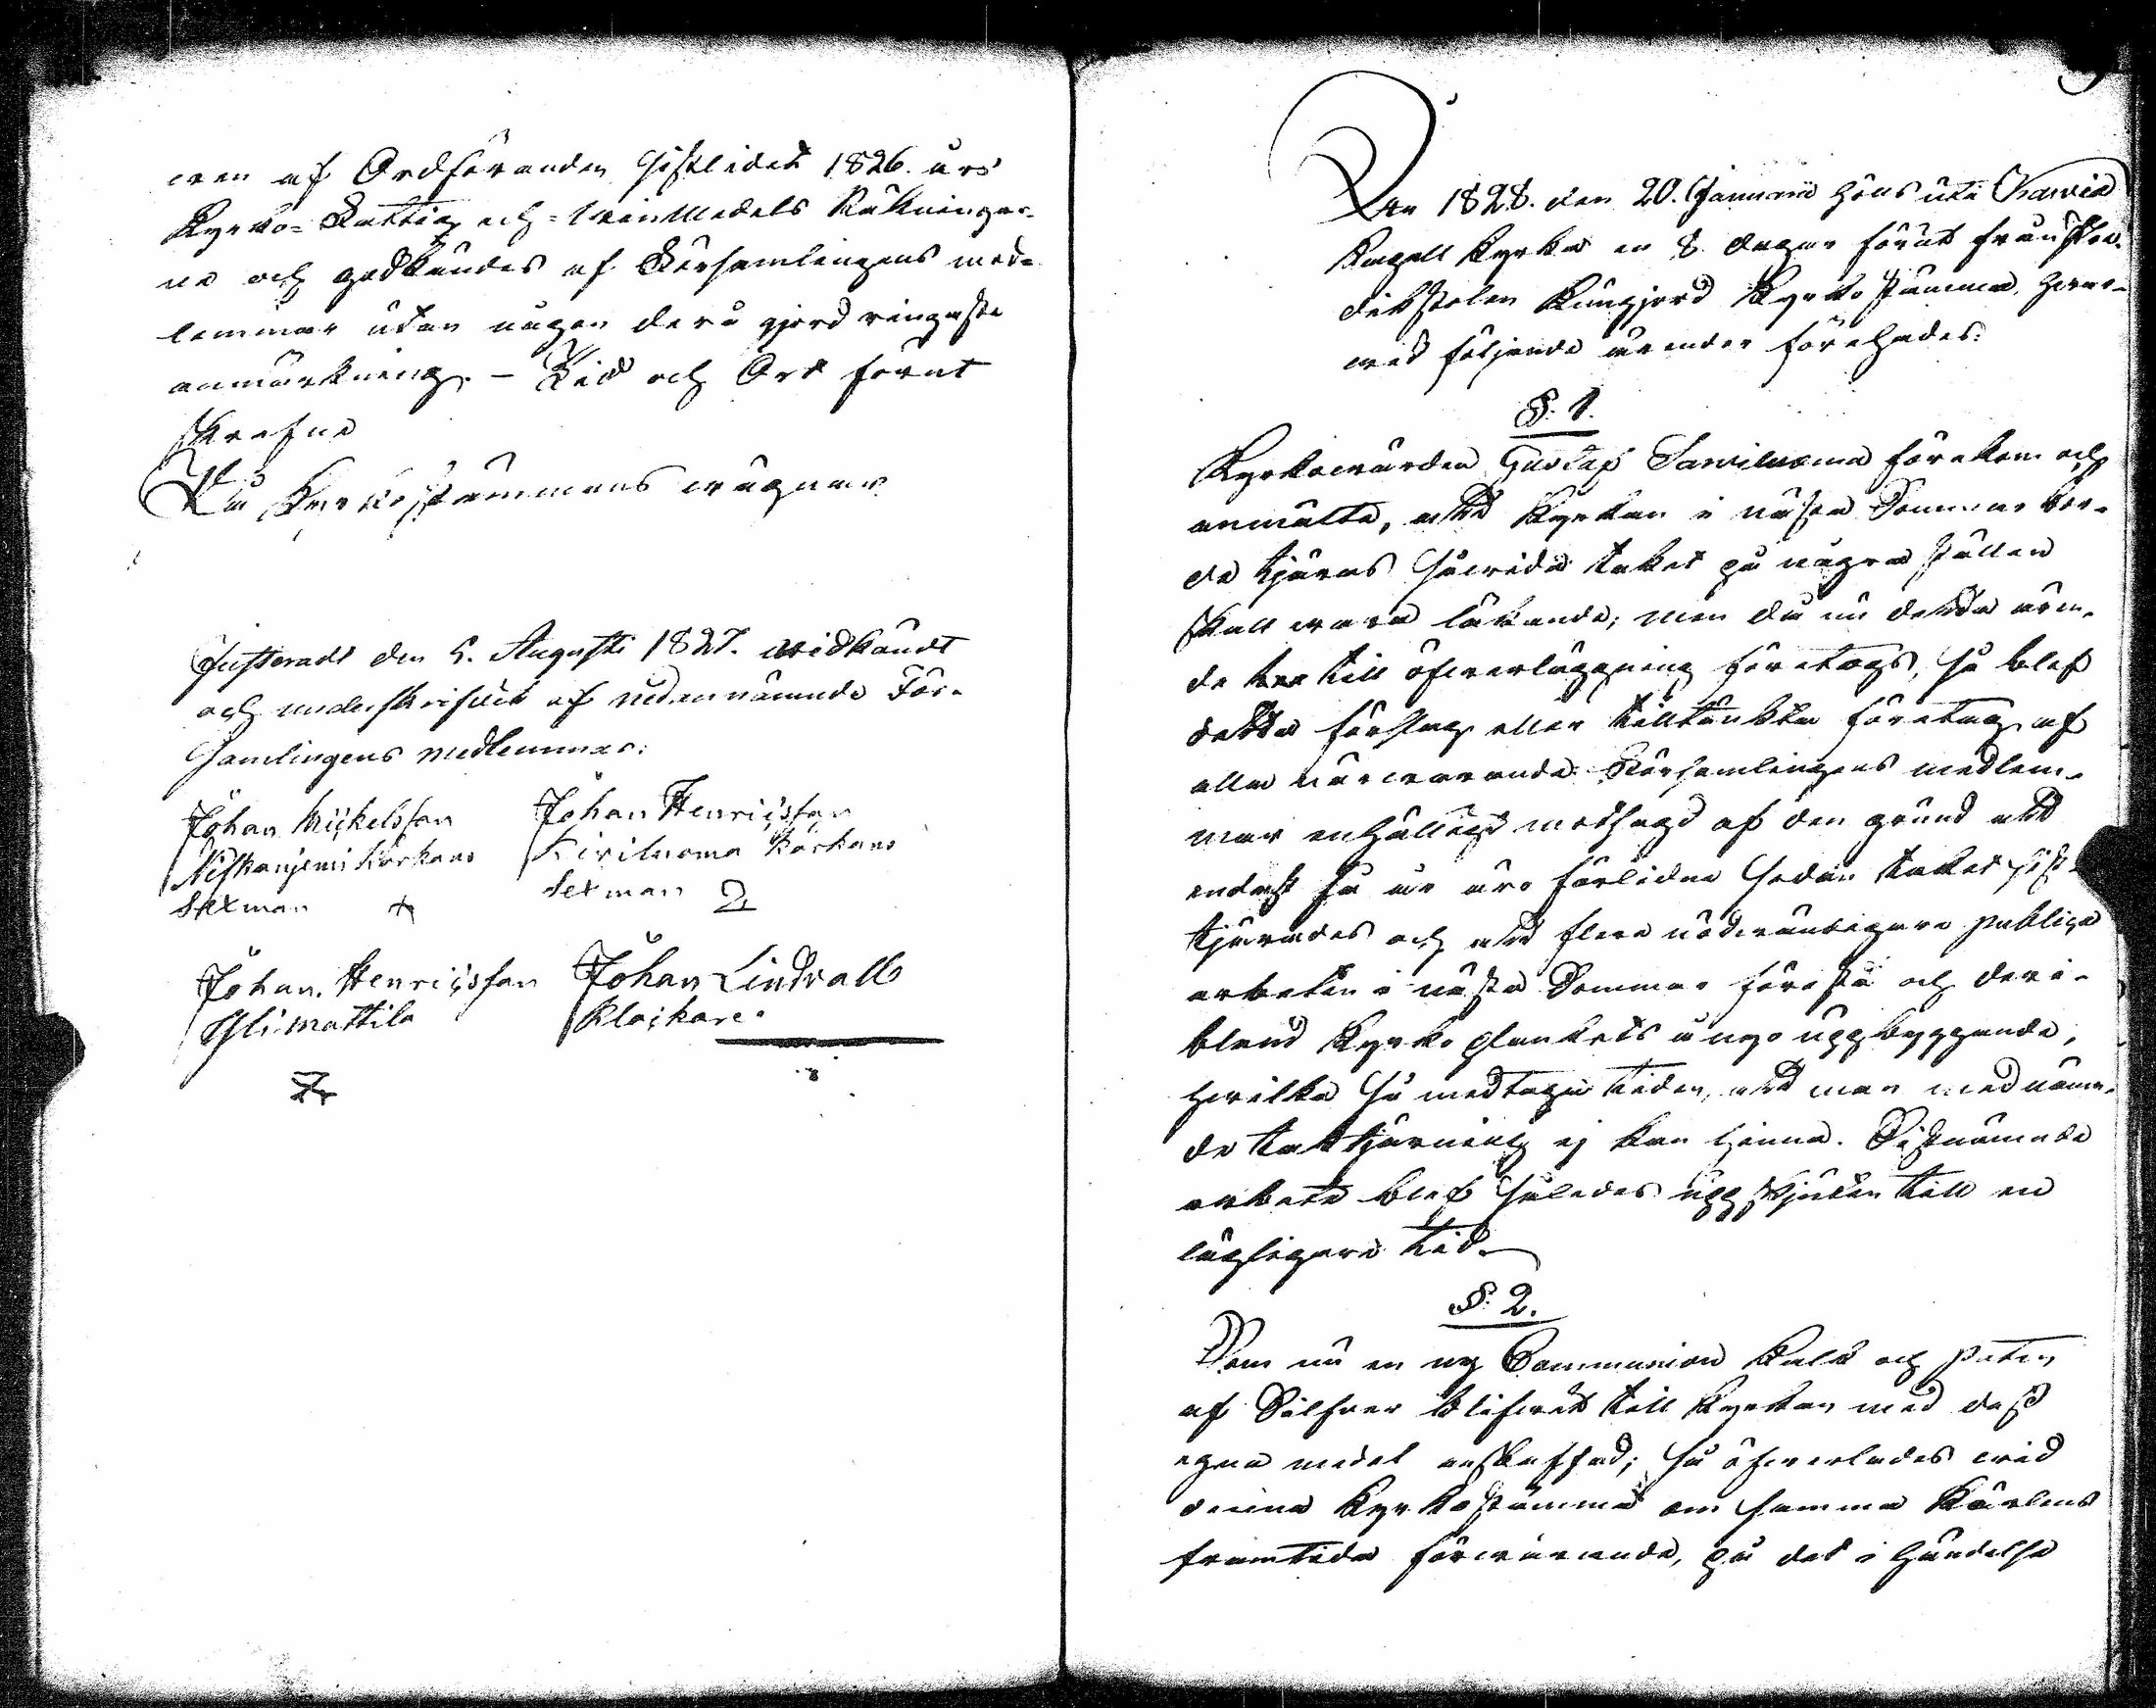 wen af Ordföranden sistlidet 1826. års
Kyrko- Fattig och Winmedels Räkningar-
ne och godkändes af Församlingens med-
lemmar utan någon derå gjord ringaste
anmärkning. – Tid och Ort förut
skrefne
På Kyrkostämmans wägnar
Justeradt den 5. Augusti 1827. widkändt
och underskrifwit af nedannämnde För-
samlingens medlemmar:
Johan Mickelsson
Niskanjemi Karhano
Sexman
Johan Henricsson
Kiriluoma Karhano
Sexman
Johan Henricsson
Yli-Mattila
Johan Lindvall
Klockare.
År 1828. den 20. Januarii höls uti Karvia
Kapell Kyrka en 8 dagar förut från Pre-
dikstolen kungjord Kyrko stämma, hwar-
wid följande ärender förehades:
§. 1.
Kyrkowärden Gustaf Sawiluoma förekom och
anmälte, att Kyrkan i nästa Sommar bor-
de tjäras såwida taket på några ställen
skall wara läkande; men då nu detta ären-
de till öfwerläggning företogs, så blef
detta förslag eller tilltänkta företag af
alla närwarande Församlingens medlem-
mar enhälligt motsagd af den grund att
endast få år äro förlidne sedan taket sist
tjärades och att flere nödwändigare publiqa
arbeten i nästa Sommar förestå och der i-
bland Kyrko plankets å nyo uppbyggande,
hwilka så medtaga tiden, att man med nämn-
de taktjärning ej kan hinna. Sistnämnde
arbete blef således uppskjuten till en
lägligare tid.
§. 2.
Som nu en ny Communion Kalk och paten
af Silfwer blifwit till Kyrkan med dess
egna medel anskaffad; så öfwerlades wid
denna Kyrkostämma om samma Kärlens
framtida förwarande, på det i händelse